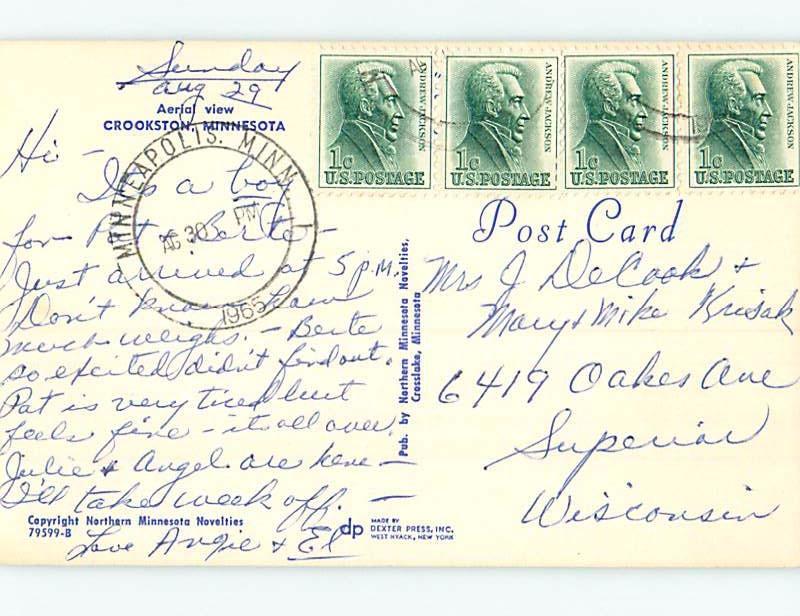 Sunday
Aug 29
Aerial view
CROOKSTON, MINNESOTA
Hi -
It's a boy
for Pat & Berte -
Just arrived at 5 p.m.
Don't know how
much weighs. - Berte
so excited didn't find out.
Pat is very tired but
feels fine - it's all over.
Julie & Angel are here -
I'll take week off. -
Love Angie & El
Copyright Northern Minnesota Novelties
79599-B
MINNEAPOLIS, MINN
AG 30 PM
1965
Pub. by Northern Minnesota Novelties,
Crosslake, Minnesota
dp
MADE BY
DEXTER PRESS, INC.
WEST NYACK, NEW YORK
ANDREW JACKSON
1c
U.S. POSTAGE
ANDREW JACKSON
1c
U.S. POSTAGE
ANDREW JACKSON
1c
U.S. POSTAGE
ANDREW JACKSON
1c
U.S. POSTAGE
Post Card
Mrs J DeCook +
Mary & Mike Krisak
6419 Oakes Ave
Superior
Wisconsin